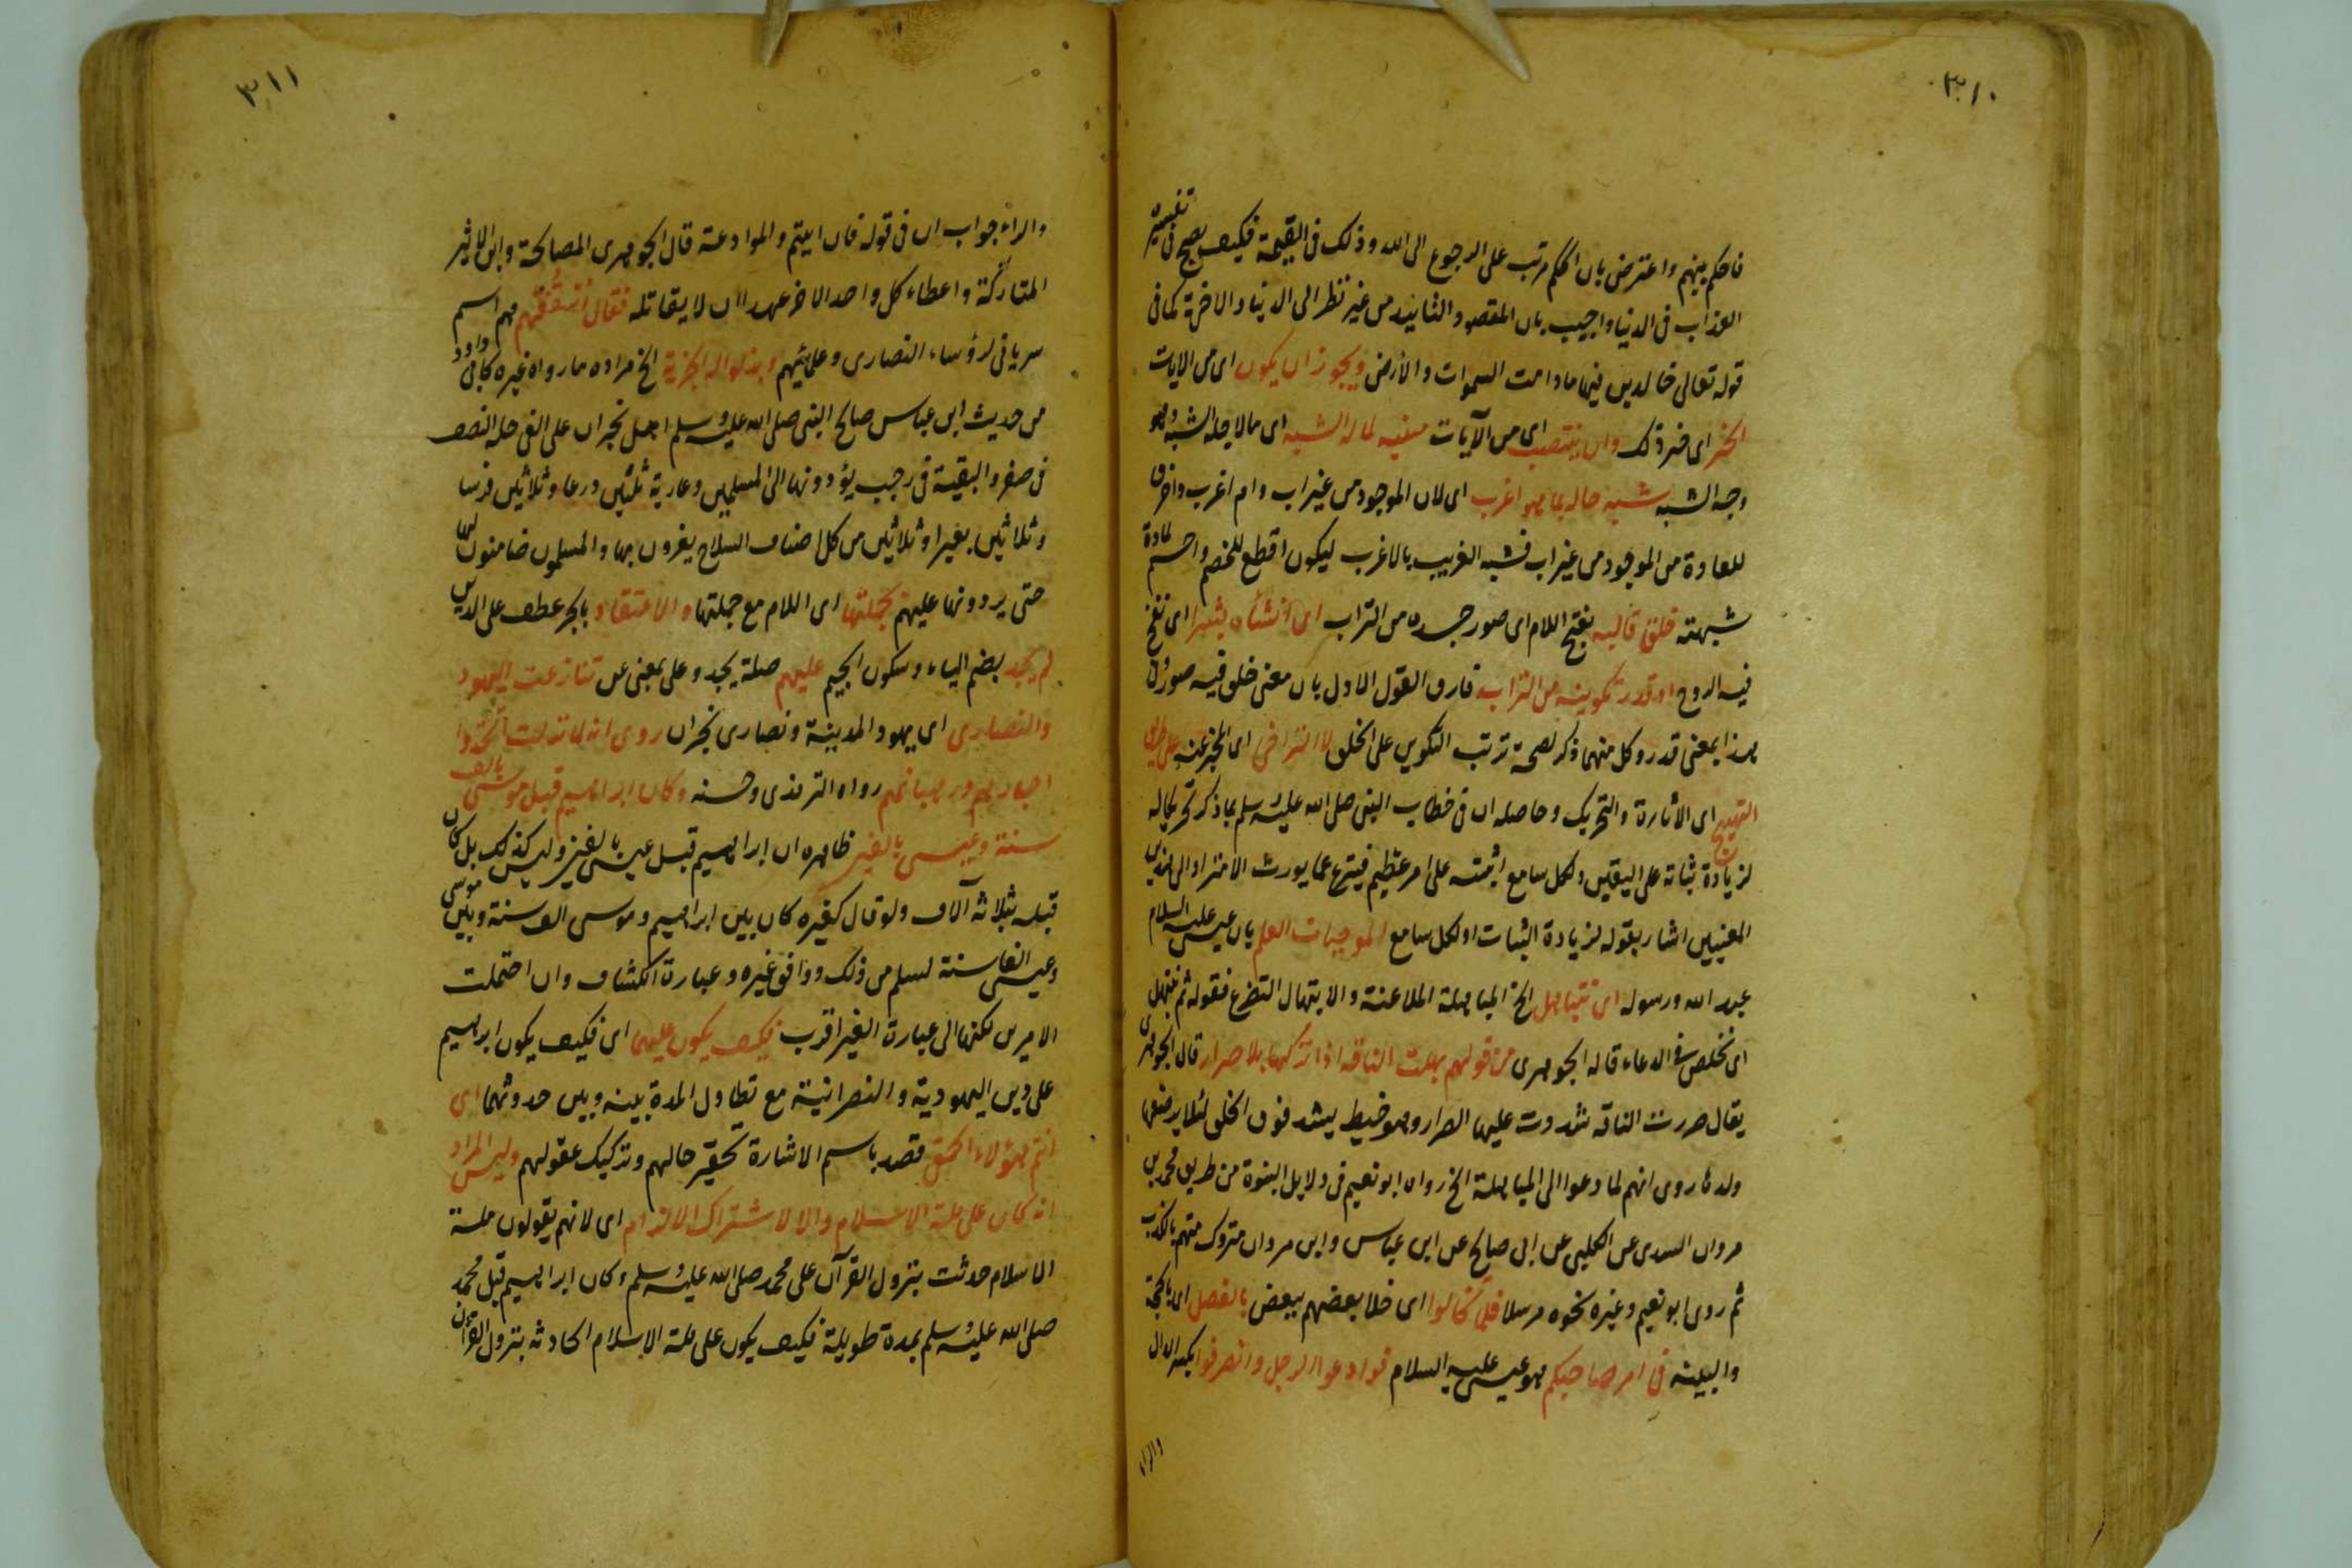 ٣١٠
فاحكم بينهم واعترض بان الحكم مرتب على الرجوع الى الله وذلك فى القيمة فكيف يصح فى تفسيره
العذاب فى الدنيا واجيب بان المقصود التابيد من غير نظر الى الدنيا والاخرة كما فى
قوله تعالى خالدين فيها مادامت السموات والأرض ويجوز ان يكون اى من الايات
الخبر اى خبر ذلك وان ينتصب اى من الآيات مبينة لما له الشبه اى ما لاجله الشبه وهو
وجه الشبه شبه حاله بما هو اغرب اى لان الموجود من غير اب وام اغرب واخرق
للعادة من الموجود من غير اب فشبه الغريب بالاغرب ليكون اقطع للخصم واحسم لمادة
شبهته خلق قالبه بفتح اللام اى صور جسده من التراب اى انشأه بشرا اى نفخ
فيه الروح او قدر تكوينه من التراب فارق القول الاول بان معنى خلق فيه صور وفى
هذا بمعنى قدر وكل منهما ذكر لصحة ترتب التكوين على الخلق لا التراخى اى الخبر عنه
التهييج اى الاثارة والتحريك وحاصله ان فى خطاب النبى صلى الله عليه وسلم بما ذكر تحريكا له
لزيادة ثباته على اليقين ولكل سامع امته على امر عظيم فينزع عما يورث الامتراء والى هذين
المعنيين اشار بقوله لزيادة الثبات او لكل سامع الموجبات العلم بان عيسى عليه السلام
عبد الله ورسوله اى نتباهل الخ المباهلة الملاعنة والابتهال التضرع فقوله ثم نبتهل
اى نخلص فى الدعاء قاله الجوهرى من قولهم بهلت الناقة اذا تركتها بلا صرار قال الجوهرى
يقال صررت الناقة شددت عليها الصرار وهو خيط يشد فوق الخلف لئلا يرضعها
ولدها روى انهم لما دعوا الى المباهلة الخ رواه ابو نعيم فى دلايل النبوة من طريق محمد بن
مروان السدى عن الكلبى عن ابى صالح عن ابن عباس وابن مروان متروك متهم بالكذب
ثم روى ابو نعيم وغيره نحوه مرسلا فلما تخالوا اى خلا بعضهم ببعض بالفصل اى بالحجة
والبينة فى امر صاحبكم هو عيسى عليه السلام فوادعوا الرجل وانصرفوا بكسر الدال
والراء
٣١١
والراء جواب ان فى قوله فان ابيتم والموادعة قال الجوهرى المصالحة وابن الاثير
المتاركة واعطاء كل واحد الاخر عهدا ان لا يقاتله فقال اسقفهم هم اسم
سريانى لرؤساء النصارى وعلمائهم وبذلوا له الجزية الخ مراده ما رواه غيره كابى داود
من حديث ابن عباس صالح النبى صلى الله عليه وسلم اهل نجران على الفى حلة النصف
فى صفر والبقية فى رجب يؤدونها الى المسلمين وعارية ثلثين درعا وثلاثين فرسا
وثلاثين بعيرا وثلاثين من كل اصناف السلاح يغزون بها والمسلمون ضامنون لها
حتى يردونها عليهم بجملتها اى اللام مع جملتها والاعتقاد بالجر عطف على الدين
لم يجد بضم الياء وسكون الجيم عليهم صلة يجد وعلى بمعنى عن تنازعت اليهود
والنصارى اى يهود المدينة ونصارى نجران روى انه لما نزلت اتخذوا
احبارهم ورهبانهم رواه الترمذى وحسنه وكان ابراهيم قبل موسى بالف
سنة وعيسى بالفين ظاهره ان ابراهيم قبل عيسى بالفين وليس كذلك بل كان
قبله بثلاثة آلاف ولو قال كغيره كان بين ابراهيم وموسى الف سنة وبين موسى
وعيسى الفا سنة لسلم من ذلك ووافق غيره وعبارة الكشاف وان احتملت
الامرين لكنها الى عبارة الغير اقرب فكيف يكون عليهما اى فكيف يكون ابراهيم
على دين اليهودية والنصرانية مع تطاول المدة بينه وبين حدوثهما اى
انتم هؤلاء الحمقى قصد باسم الاشارة تحقير حالهم وتركيك عقولهم وليس المراد
انه كان على ملة الاسلام والا لاشترك الالزام اى لانهم يقولون ملة
الاسلام حدثت بنزول القرآن على محمد صلى الله عليه وسلم وكان ابراهيم قبل محمد
صلى الله عليه وسلم بمدة طويلة فكيف يكون على ملة الاسلام الحادثة بنزول القرآن